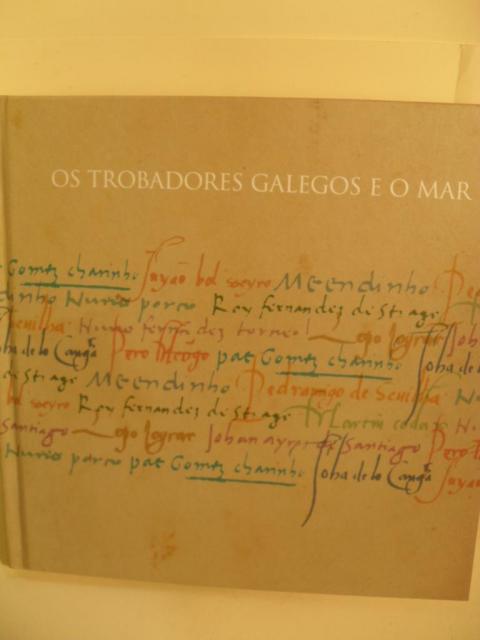 OS TROBADORES GALEGOS E O MAR
Gomez charinho Juyaõ bol seyro Meendinho Ped
Nuno porco Roy fernandez de St iago
Sevilha Nuno fernãdez torneol Joh
Joha de lo Cangas Pero Meogo pae Gomez charinho Joha de lo
de St iago Meendinho Pedramigo de Sevilha
bol seyro Roy fernandez de St iago Martin codax
Santiago Johan ayras de Santiago Pero
Nuno porco pae Gomez charinho Joha de lo Cangas Juyaõ